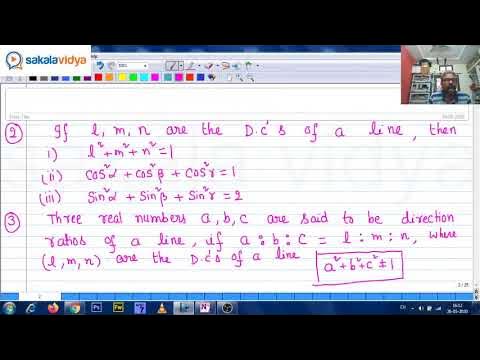 sakalavidya
② If l, m, n are the D.c's of a line, then
i) l²+m²+n²=1
(ii) cos²α + cos²β + cos²γ = 1
(iii) Sin²α + Sin²β + Sin²γ = 2
③ Three real numbers a, b, c are said to be direction
ratios of a line, if a : b : c = l : m : n, where
(l, m, n) are the D.c's of a line
a²+b²+c² ≠ 1